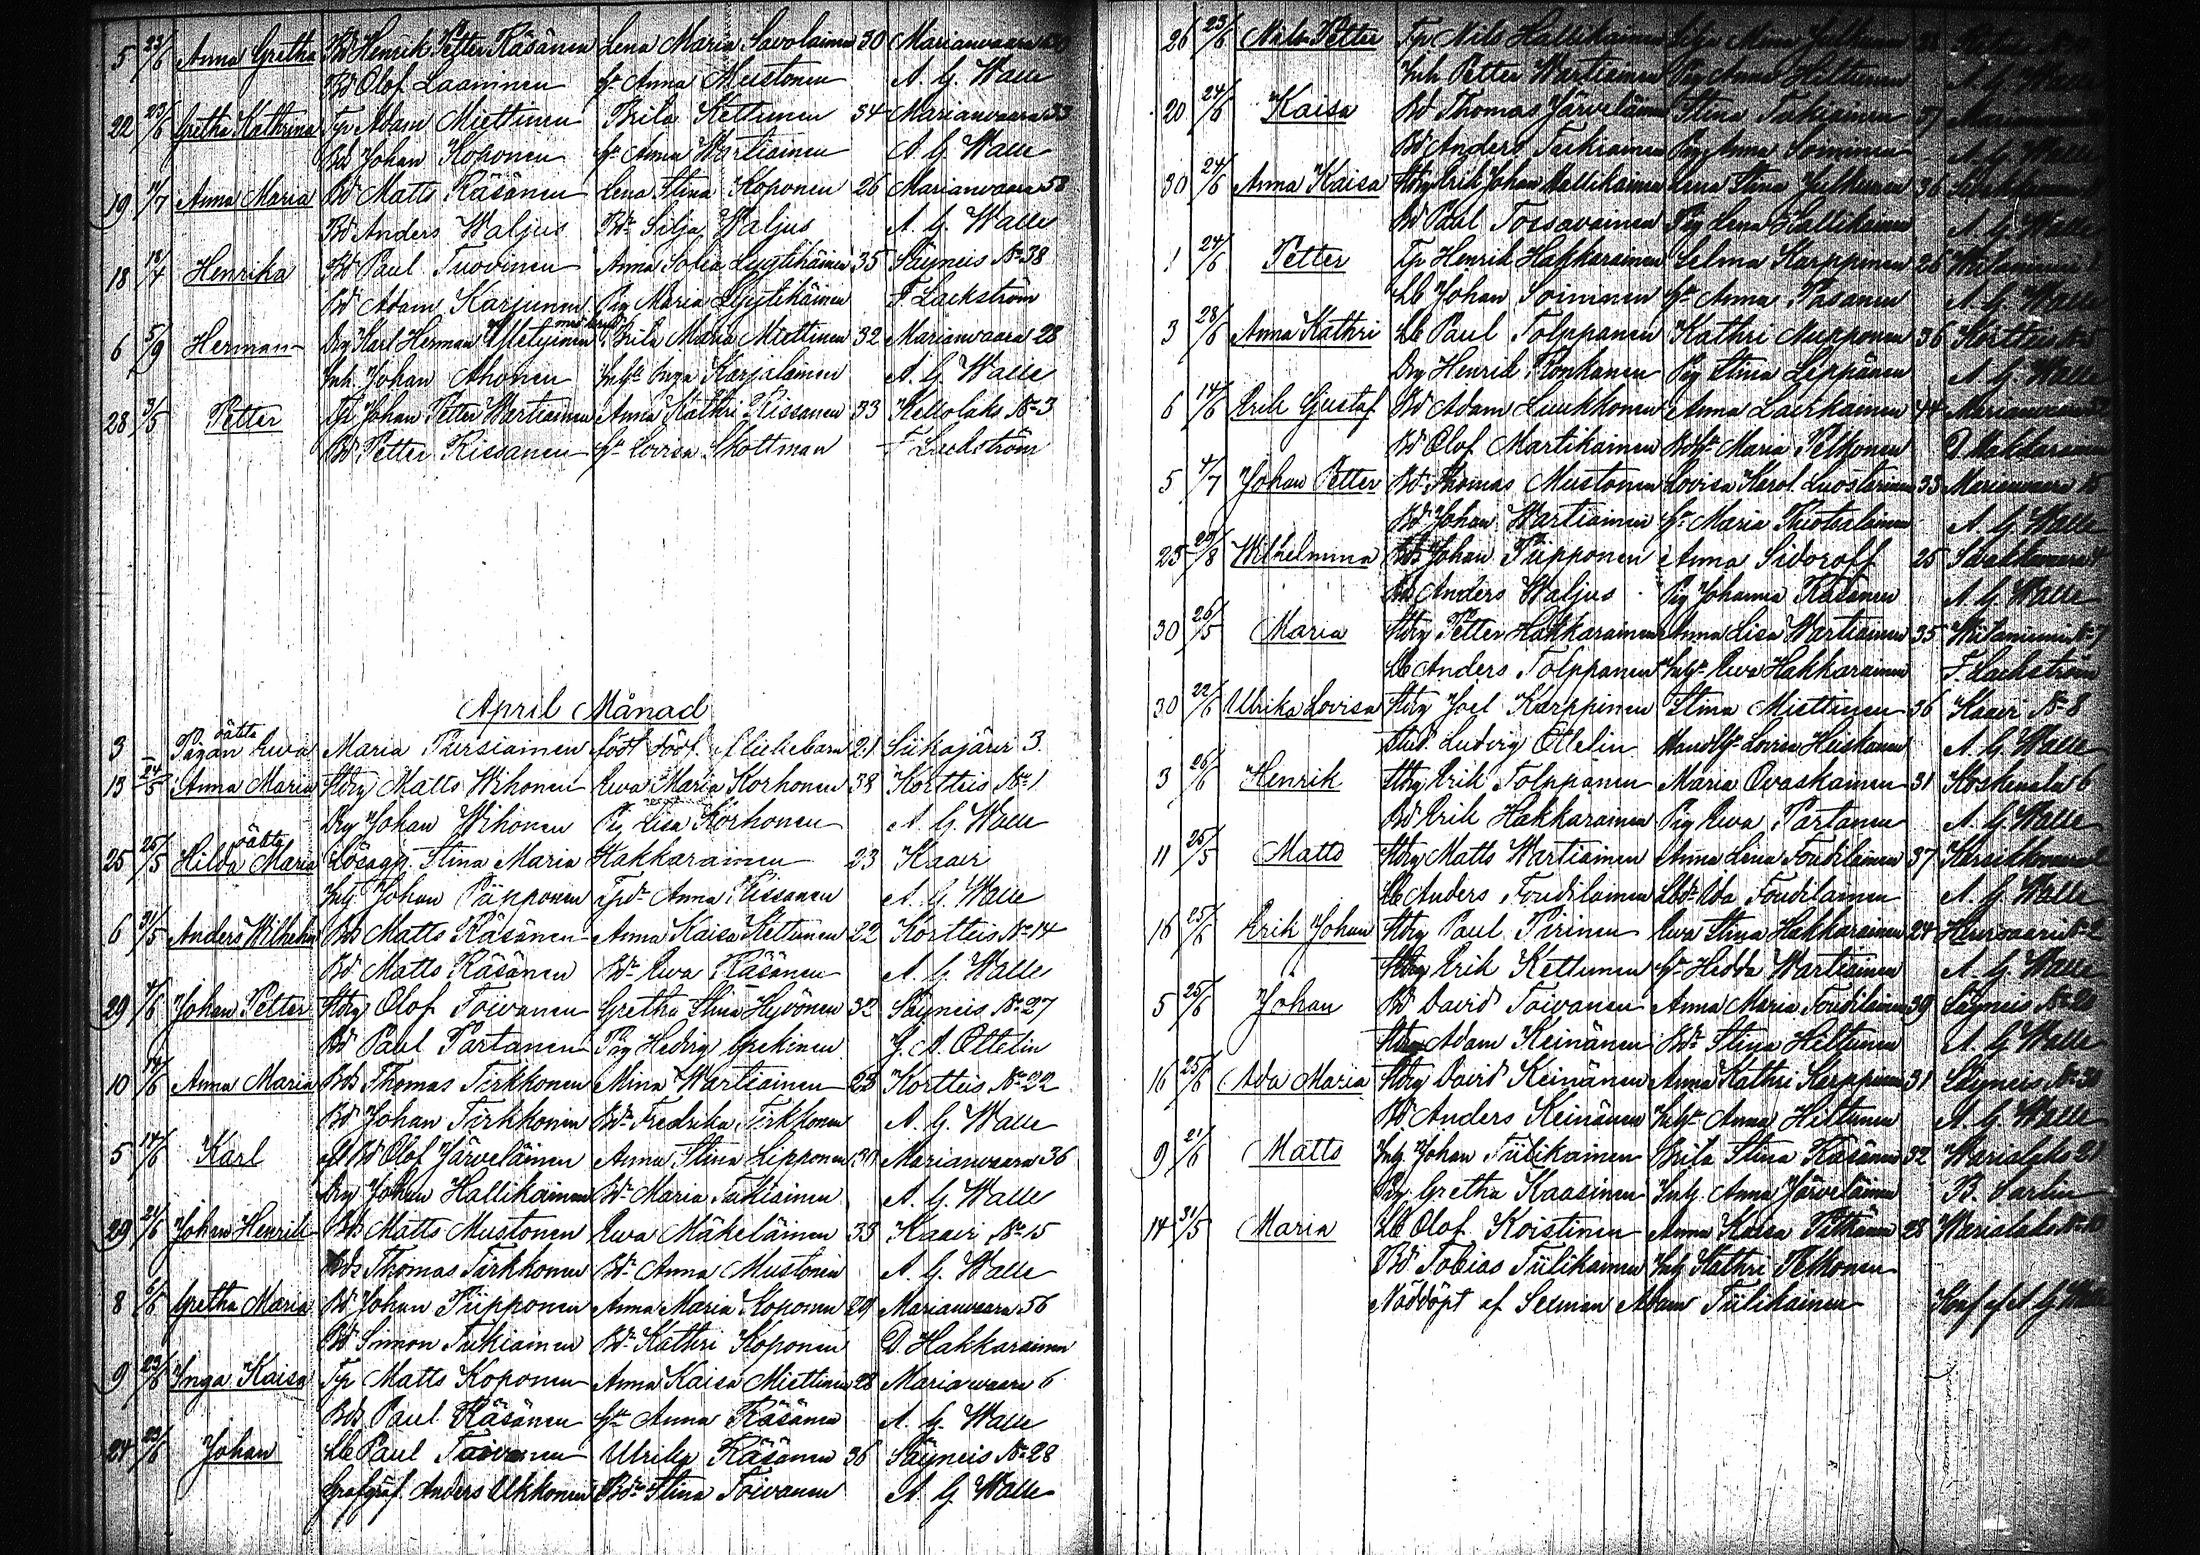 5 23/6 Anna Gretha Bd Henrik Petter Räsänen Lena Maria Savolainen 30 Marianvaara
Bd Olof Laaninen hu Anna Mustonen A. G. Walle
22 23/6 Gretha Kathrina Tp Adam Miettinen Brita Kettunen 34 Marianvaara 33
Bds Johan Koponen hu Anna Wartiainen A. G. Walle
19 17/7 Anna Maria Bd Matts Räsänen Lena Stina Koponen 26 Marianvaara 58
Bd Anders Waljus Bdr Silja Waljus A. G. Walle
18 18/4 Henrika Bd Paul Tuovinen Anna Sofia Lyytikäinen 35 Säyneis No 38
Bd Adam Karjunen Pig Maria Lyytikäinen F. Lackström
6 5/9 Herman Drg Karl Herman Brita Maria Miettinen 32 Marianvaara 28
Inh. Johan Ahonen Inhu Inga Karjalainen A. G. Walle
28 3/5 Petter Tp Johan Petter Wartiainen Anna Kathri Rissanen 33 Kellolaks No 3
Bd Petter Rissanen hu Lovisa Skottman F. Lackström
April Månad
3 Pigan oäkta Ewa Maria Pursiainen född död Flickebarn 21 Siikajärvi 3
13 24/5 Anna Maria Stdrg Matts Wihonen Ewa Maria Korhonen 38 Kortteis No 1
Drg Johan Wihonen Pig Lisa Korhonen A. G. Walle
25 25/5 oäkta Hilda Maria Lösagg. Stina Maria Hakkarainen 23 Kaavi
Inh Johan Päpponen Tpdr Anna Rissanen A. G. Walle
6 31/5 Anders Wilhelm Bds Matts Räsänen Anna Kaisa Kettunen 22 Kortteis No 14
Bd Matts Räsänen Bdr Ewa Räsänen A. G. Walle
29 7/6 Johan Petter Stdrg Olof Toivanen Gretha Stina Hyvönen 32 Säyneis No 27
Bd Paul Partanen Pig Hedvig G. A. Ottelin
10 14/6 Anna Maria Bds Thomas Tirkkonen Mina Wartiainen 28 Kortteis No 22
Bd Johan Tirkkonen Bdr Fredrika Tirkkonen A. G. Walle
5 14/6 Karl Bd Olof Järveläinen Anna Stina Lipponen 30 Marianvaara 36
Drg Johan Hallikainen Bdr Maria Tukiainen A. G. Walle
29 21/6 Johan Henrik Bds Matts Mustonen Ewa Mäkeläinen 33 Kaavi No 15
Bds Thomas Tirkkonen Bdr Anna Mustonen A. G. Walle
8 6/6 Gretha Maria Bd Johan Piipponen Anna Maria Koponen 29 Marianvaara 56
Bd Simon Tukiainen Bdr Kathri Koponen D. Hakkarainen
9 23/6 Inga Kaisa Tp Matts Koponen Anna Kaisa Miettinen 28 Marianvaara 6
Bds Paul Räsänen hu Anna Räsänen A. G. Walle
24 23/6 Johan Lb Paul Toivanen Ulrika Räsänen 36 Säyneis No 28
Anders Ukkonen Bdr Stina Toivanen A. G. Walle
26 23/6 Nils Petter Tp Nils Hallikainen
Inh Petter Wartiainen Pig Anna Hiltunen A. G. Walle
20 24/6 Kaisa Bd Thomas Järveläinen Stina Tukiainen
Bd Anders Tukiainen Pig Anna Soininen A. G. Walle
30 24/6 Anna Kaisa Stdrg Erik Johan Hallikainen Lena Stina Julkunen 36
Bd Paul Tossavainen Pig Lena Hallikainen A. G. Walle
1 24/6 Petter Tp Henrik Hakkarainen Selma Karppinen 26
Lb Johan Soininen hu Anna Pasanen A. G. Walle
3 28/6 Anna Kathri Lb Paul Tolppanen Kathri Nupponen 36 Kortteis
Drg Henrik Ronkanen Pig Stina Leppänen A. G. Walle
6 14/6 Erik Gustaf Bd Adam Luukkonen Anna 44 Marianvaara
Bd Olof Martikainen Bdhu Maria Pelkonen D. Hakkarainen
5 4/7 Johan Petter Bd Thomas Mustonen Lovisa Karol. Luostarinen 33 Marianvaara 15
Bd Johan Wartiainen hu Maria Ruotsalainen A. G. Walle
23 29/8 Wilhelmina Bds Johan Piipponen Anna Sidoroff 25
Bd Anders Waljus Pig Johanna Räsänen A. G. Walle
30 26/5 Maria Stdrg Petter Hakkarainen Anna Lisa Wartiainen 35 Wiitaniemi No 7
Lb Anders Tolppanen Inhu Ewa Hakkarainen F. Lackström
30 22/6 Ulrika Lovisa Stdrg Joel Karppinen Stina Miettinen 36 Kaavi No 8
Stud. Ludvig Ottelin Lovisa Heiskanen A. G. Walle
3 26/6 Henrik Stdrg Erik Tolppanen Maria Ovaskainen 31 Koskenala 6
Bd Erik Hakkarainen Pig Ewa Partanen A. G. Walle
11 25/5 Matts Stdrg Matts Wartiainen Anna Lena Toudilainen 37
Lb Anders Toudilainen Lbdr Ida Toudilainen A. G. Walle
16 25/6 Erik Johan Stdrg Paul Pirinen Ewa Stina Hakkarainen 24 Hirvivaara No 2
Stdrg Erik Kettunen hu Hedda Wartiainen A. G. Walle
5 25/6 Johan Bd David Toivanen Anna Maria Toudilainen 39 Säyneis No 20
Stdrg Adam Keinänen Bdr Stina Hiltunen A. G. Walle
16 25/6 Ada Maria Stdrg David Keinänen Anna Kathri Karppinen 31 Säyneis No 30
Bd Anders Keinänen Inhu Anna Hiltunen A. G. Walle
9 21/6 Matts Inh Johan Tiilikainen Brita Stina Räsänen 32 Warislaks 21
Pig Gretha Kaasinen Inh. Anna Järveläinen B. Sarlin
14 31/5 Maria Lb Olof Koistinen Anna Kaisa Pitkänen 28 Warislaks
Bd Tobias Tiilikainen Inh Kathri Pelkonen
Nöddöpt af Sexman Adam Tiilikainen Konf. af A. G. Walle